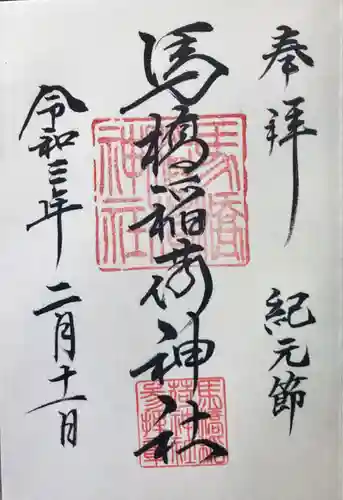 奉拝
紀元節
馬橋稲荷神社
令和三年
二月十一日
馬橋
神社